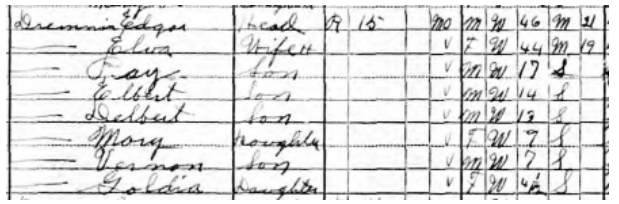 Dremmin Edgar Head R 15 No M W 46 M 21
— Elva Wife H V F W 44 M 19
— Fay Son V M W 17 S
— Elbert Son V M W 14 S
— Delbert Son V M W 13 S
— Mary Doughter V F W 9 S
— Vernon Son V M W 7 S
— Goldia Daughter V F W S